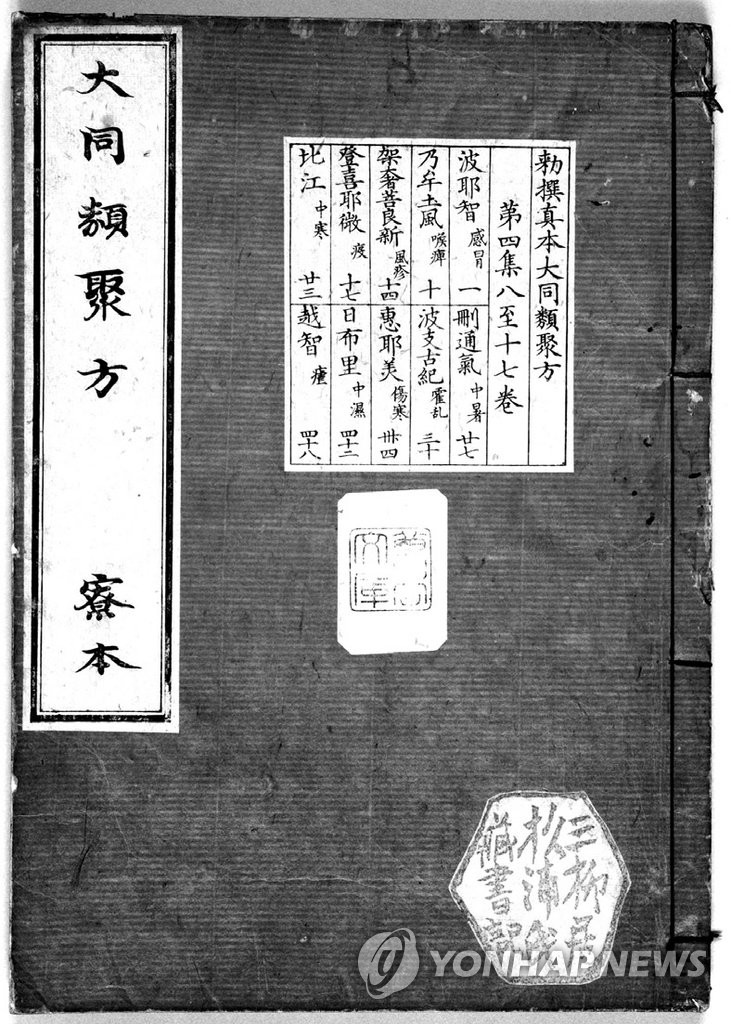 大同類聚方 寮本
勅撰真本大同類聚方
第四集八至十七卷
波耶智 感冒 一
刪通氣 中暑 廿七
乃牟土風 喉痺 十
波支古紀 霍乱 三十
架奢善良新 風疹 十四
惠耶美 傷寒 卅四
登喜耶微 疫 十七
日布里 中濕 四十二
比江 中寒 廿三
越智 瘧 四十八
文庫
三柳居
松浦
藏書記
YONHAP NEWS